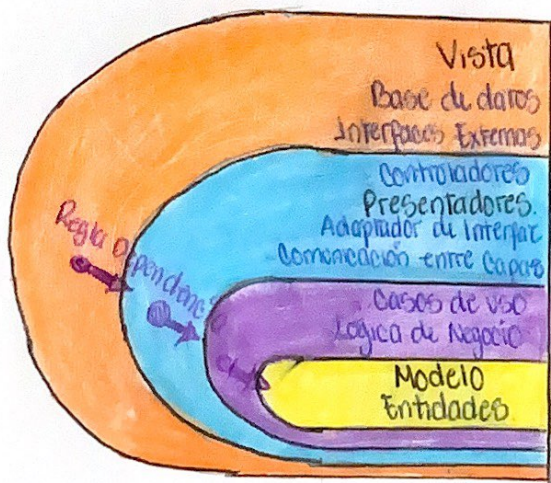 Vista
Base de datos
Interfaces Externas
Controladores
Presentadores.
Adaptador de Interfaz
Comunicación entre Capas
Regla Dependencia
Casos de uso
Lógica de Negocio
Modelo
Entidades